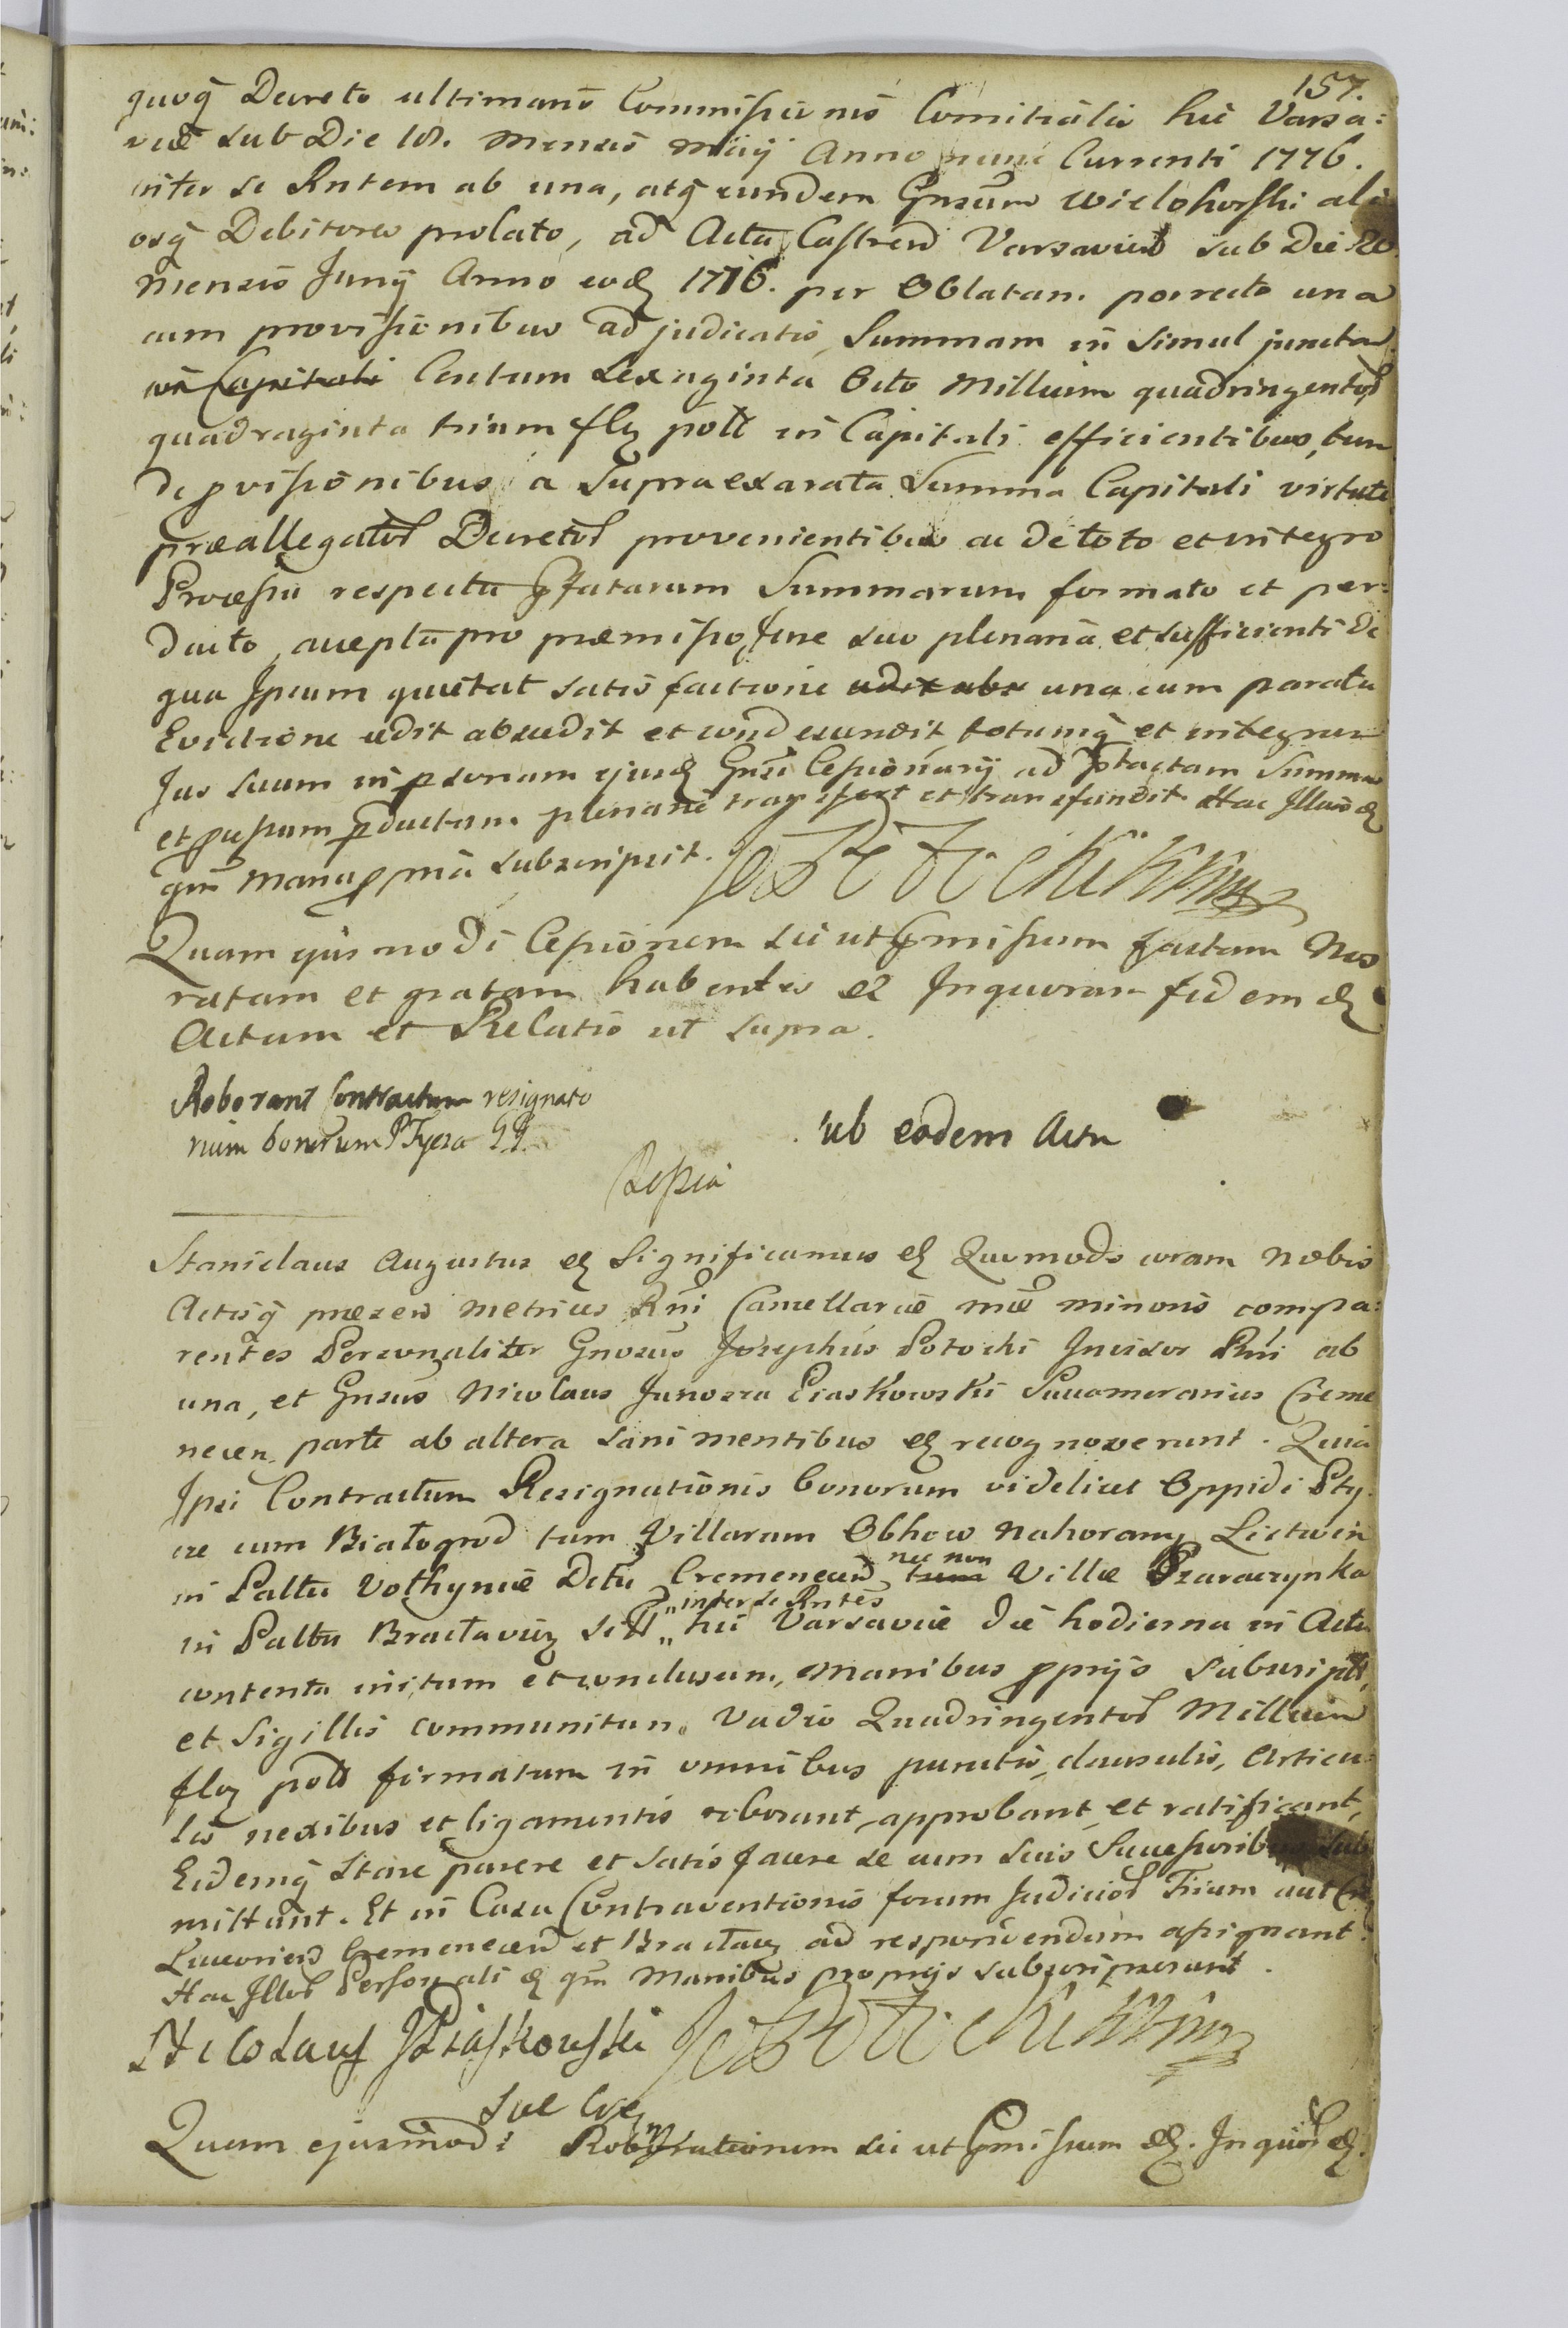 157.
quoq̃ Decreto ultimario Commissionis Comitialis hic Varsa:
viæ sub Die 18. Mensis Maij Anno nunc Currenti 1776.
inter se Rntem ab una, atq̃ eundem Gnsum Wielohorski ali
osq̃ Debitores prolato, ad Acta Castren Varsavien sub Die 20
mensis Junij Anno eodẽ 1776. per Oblatam porrecto una
cum provisionibus adjudicatis, Summam in simul junctam
Centum sexaginta Octo Millium quadringentor
quadraginta trium flẽ poll in Capitali efficientibus, tum
de pvisionibus a supra exarata Summa Capitali virtute
præallegator Decretor provenientibus ac de toto et integro
Processu respectu pfatarum Summarum formato et per:
ducto, accepta pro præmisso Jure suo plenaria et sufficienti de
qua Ipsum quietat satisfactione una cum parata
Evictione cedit abscedit et condescendit totumq̃ et integrum
Jus suum in psonam ejusdẽ Gnsi Cessionarij ad ptactam Summam
et pcessum pductum plenarie transfert et transfundit. Hac Illaõ ẽ
qm̃ manu ppria subscripsit.
Quam ejusmodi Cessionem sic ut pmissum factam Nos
ratam et gratam habentes ẽ In quorum fidem ẽ
Actum et Relatio ut supra.
Roborant Contractum resignato
rium bonorum PTycza GG
sub eodem Actu
Stanislaus Augustus ẽ Significamus ẽ Quomodo coram Nobis
Actisq̃ præsen Metrices Rni Cancellariæ nræ minoris compa:
rentes Personaliter Gnosus Josephus Potocki Incisor Rni ab
una, et Gnsus Nicolaus Junosza Piaskowski Succamerarius Creme
necen parte ab altera sani mentibus ẽ recognoverunt. Quia
Ipsi Contractum Resignationis bonorum videlicet Oppidi Pty
cze cum Białogrod tum Villarum Obhow Nahorany Lictwin
in Paltu Vołhyniæ Dctu Cremenecen nec non Villæ Szaraczynka
in Paltu Bracłavien sitt " inter se Rntes " hic Varsaviæ die hodierna in Actu
contenta initum et conclusum, Manibus pprijs subscript,
et Sigillis communitum. Vadio Quadringentor Millium
flẽ poll firmatum in omnibus punctis, clausulis, Articu:
lis nexibus et ligamentis roborant, approbant, et ratificant,
Eidemq̃ stare parere et satisfacere se cum suis Successoribus sub
mittunt. Et in Casu Contraventionis forum Judicior Trium aut
Succorien Cremenecen et Bracłavien ad respondendum assignant.
Hac Illor Personali ẽ qm̃ Manibus proprijs subscripserunt.
Nicolaus JPiaskowski
Sue Cre
Quam ejusmodi Roborationem sic ut pmissum ẽ. In quor ẽ.